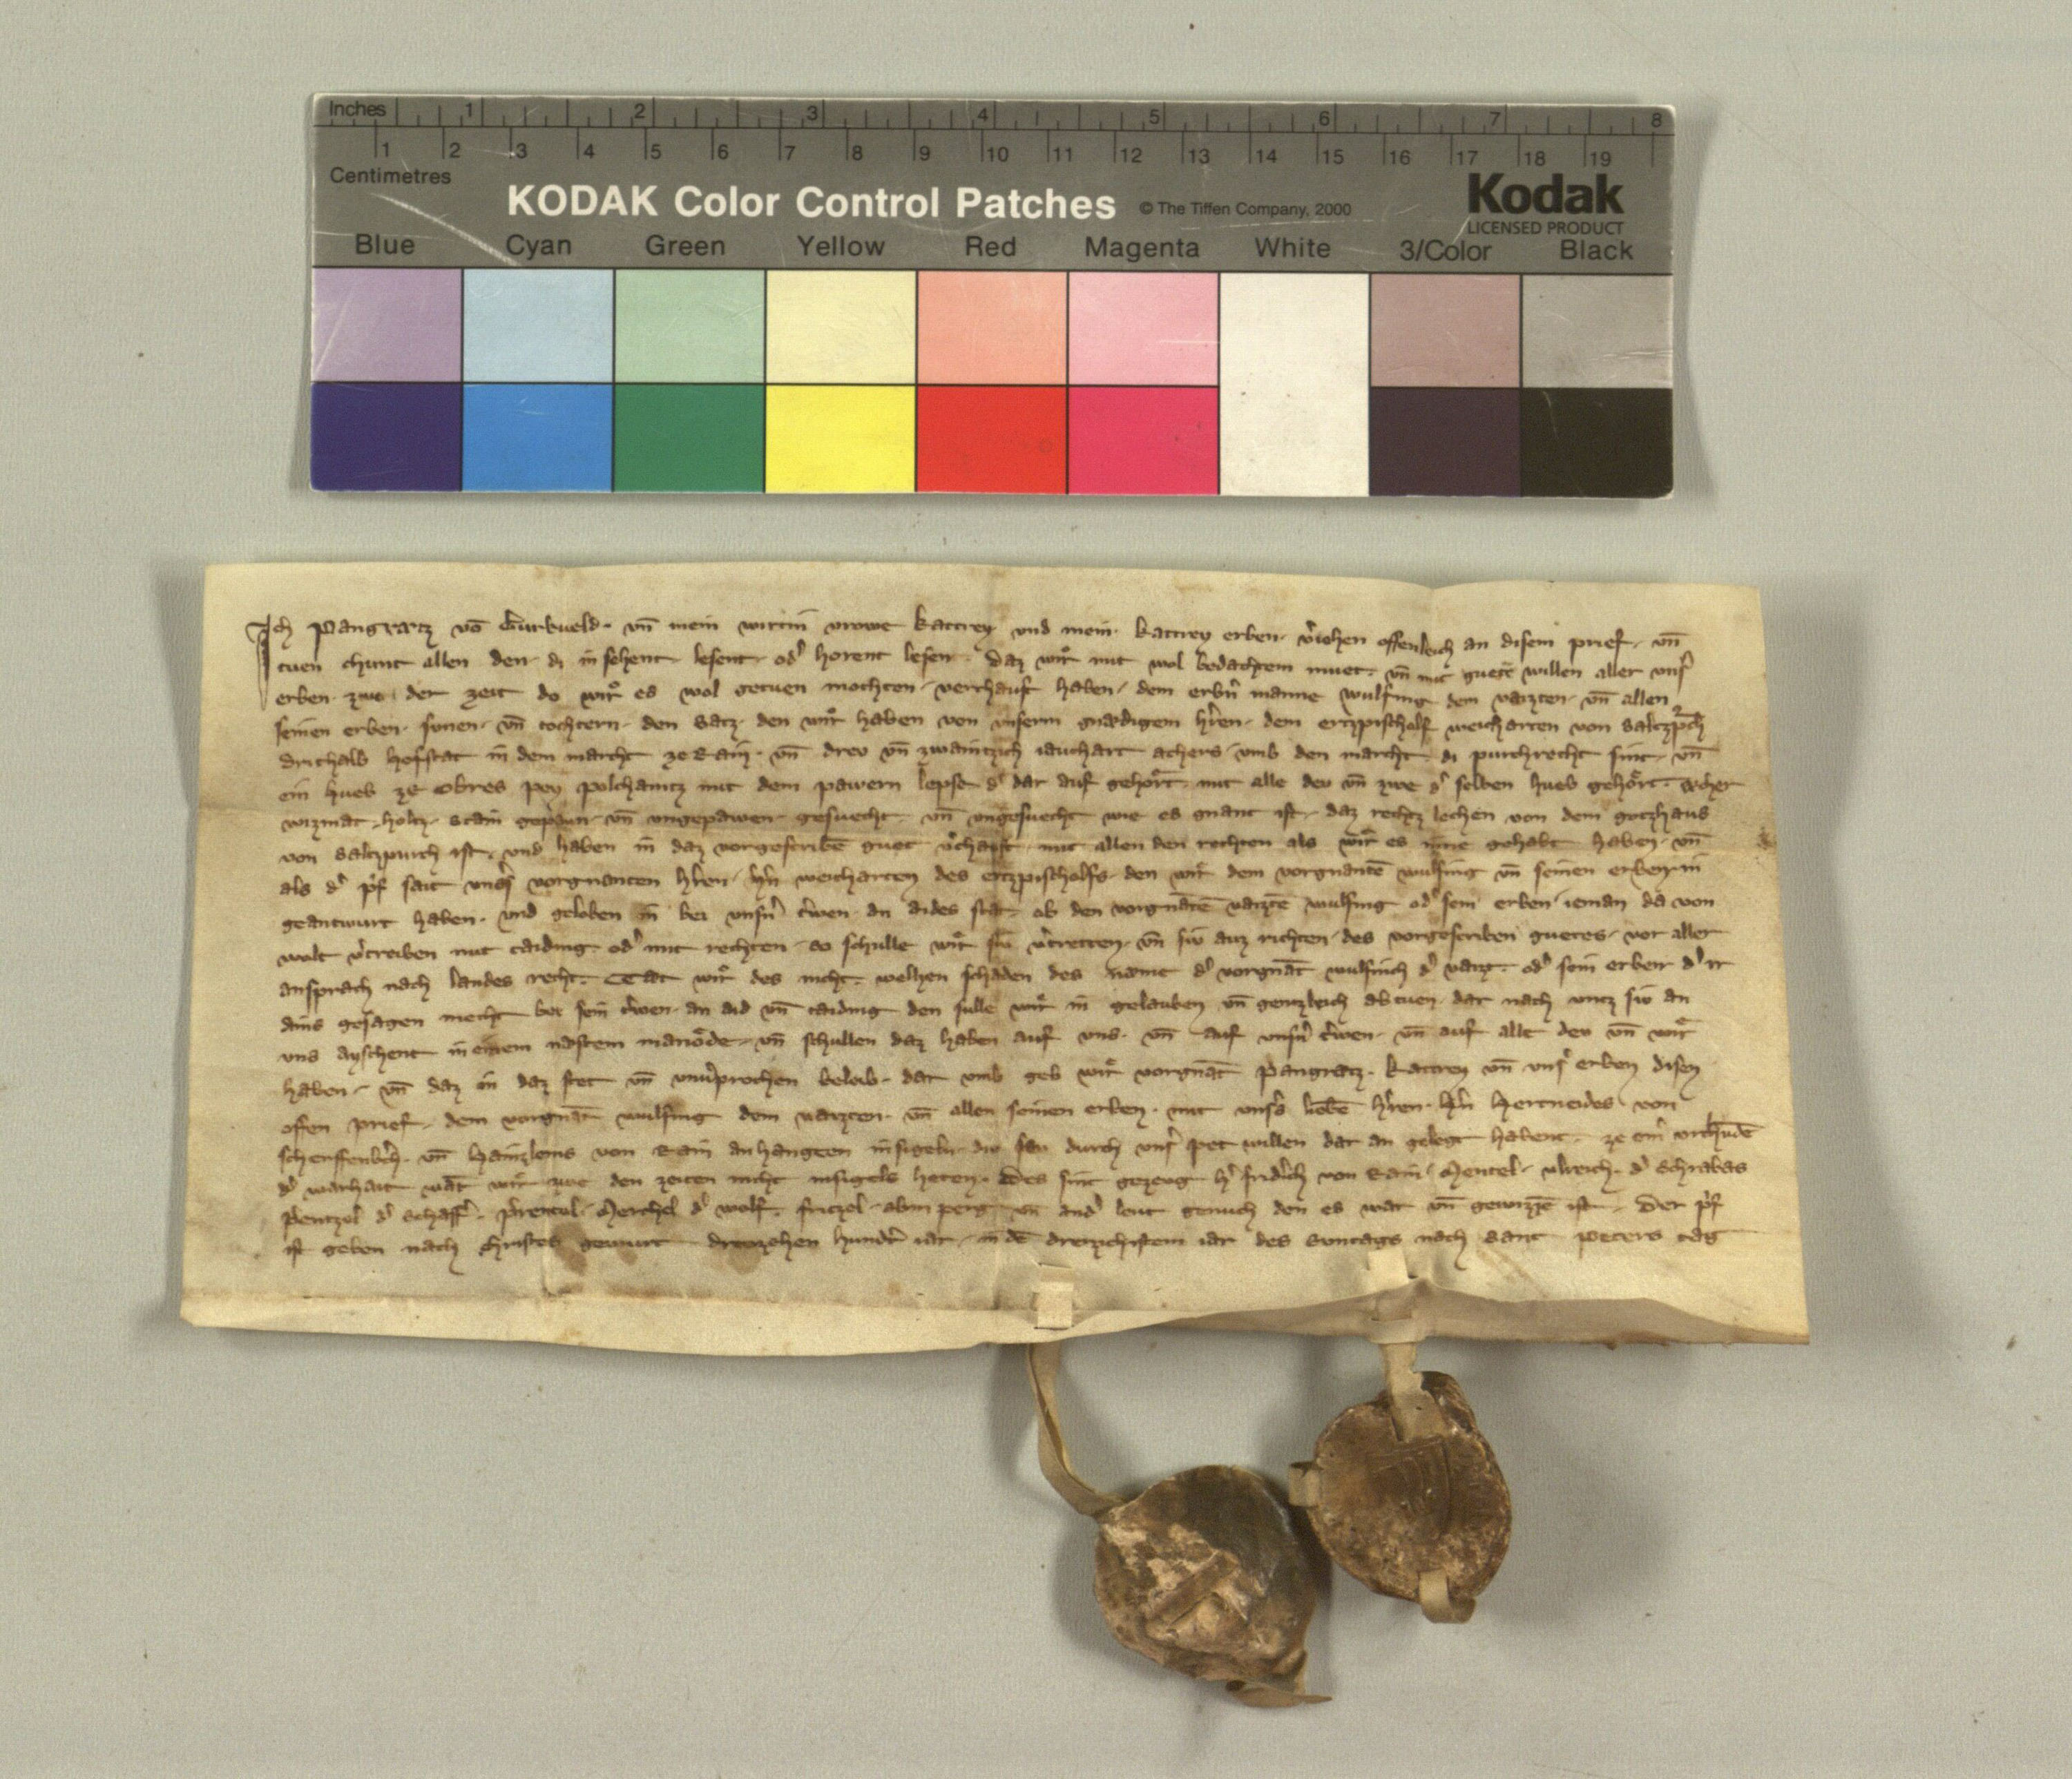 Inches 1 2 3 4 5 6 7 8
1 2 3 4 5 6 7 8 9 10 11 12 13 14 15 16 17 18 19
Centimetres
KODAK Color Control Patches © The Tiffen Company, 2000 Kodak
LICENSED PRODUCT
Blue Cyan Green Yellow Red Magenta White 3/Color Black
Ich Pangratz vō Gurkueld · vn̄ mein wirtin vrowe kattrey vnd mein · kattrey erben · v̓iehen offenleich an disem prief · vn̄
tuen chunt allen den · di in sehent lesent · od̓ horent lesen · daz wir mit wol bedachtem muet · vn̄ mit guetē willen aller vnsr̓
erben · zwe der zeit do wir es wol getuen mochten · verchauft haben · dem erbn̓ manne wulfing dem varzten · vn̄ allen
seinen erben · sunen · vn̄ tochtern · den satz · den wir haben von vnserm gnædigem hr̓en · dem ertzpischolf weicharten von saltzpᵘch
drithalb hofstat in dem marcht ze Rain · vn̄ drev vn̄ zwaintzich iauchart achers · vmb den marcht · di purchrecht sint · vn̄
ein hueb ze obres pey polchanitz mit dem pawern lepse d̓ dar auf gehört · mit alle dev vn̄ zwe d̓ selben hueb gehört · æcher
wizmat · holtz · stain gepawn · vn̄ vngepawen · gesuecht · vn̄ vngesuecht wie es gnant ist · daz rechtz lechen von dem gotzhaus
von saltzpurch ist · vnd haben in daz vorgescribē guet v̓chauft mit allen den rechten als wir es inne gehabt haben · vn̄
als d̓ pr̓f sait vnsr̓s vorgnanten hr̓en · hn̓ weicharten des ertzpischolfs · den wir dem vorgnantē wulfing vn̄ seinen erben · in
geantwurt haben · vnd geloben in bei vnsn̓ tr̓wen · an aides stat · ob den vorgnātē varztē wulfing od̓ sein erben ieman da von
wolt v̓treiben mit taiding · od̓ mit rechten · so schulle wir siv v̓tretten · vn̄ siv auz richten · des vorgescriben guetes · vor aller
ansprach nach landes recht · Tæt wir des nicht · welhen schaden des næme d̓ vorgnāt wulfinch d̓ varzt · od̓ sein erben d̓ ir
ains gesagen mecht bei sein tr̓wen · an aid vn̄ taiding den sulle wir in gelauben vn̄ gentzleich abtuen · dar nach vntz siv an
vns ayschent in einem nastem manōde · vn̄ schullen daz haben auf vns · vn̄ auf vnsn̓ tr̓wen · vn̄ auf alle dev vn̄ wir
haben · vn̄ daz in daz stet vn̄ vnv̓prochen beleib · dar vmb geb wir vorgnāt Pangratz · kattrey vn̄ vnsr̓ erben disen
offen prief · dem vorgnāt wulfing dem varzten · vn̄ allen seinen erben · mit vnsr̓s liebē hr̓en · hn̓ hertneides von
scherffenbr̓ch · vn̄ hainzleins von Rain anhangeten insigeln · div durch vnsr̓ pet willen dar an gelegt habent · ze ein̓ vrchūdē
d̓ warhait · wāt wir zwe den zeiten nicht insigels heten · Des sint gezeug h̓ fridr̓ich von Rain · Mentel · vlreich · d̓ schrabas
pentzel d̓ schaff̓ · Merchel d̓ wolf · fritzel · abm perg vn̄ and̓ leut genuch den es wār vn̄ gewizzē ist · Der pr̓f
ist geben nach Christes gewurt drevzehen hundr̓t iar · in dē dreizichistem iar des svntags nach sant peters tag